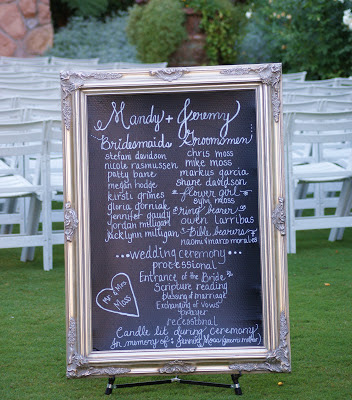 Mandy + Jeremy
Bridesmaids
stefani davidson
nicole rasmussen
patty bane
megan hodge
kirsti grimes
gloria dorniak
jennifer gaudy
jordan milligan
jacklynn milligan
Groomsmen
chris moss
mike moss
markus garcia
shane davidson
flower girl
sym moss
ring bearer
owen larribas
Bible bearers
naomi & marco morales
wedding ceremony
processional
Entrance of the Bride
Scripture reading
blessing of marriage
Exchanging of Vows
prayer
recessional
Mr & Mrs
Moss
Candle lit during ceremony
In memory of: Moss (grooms mother)